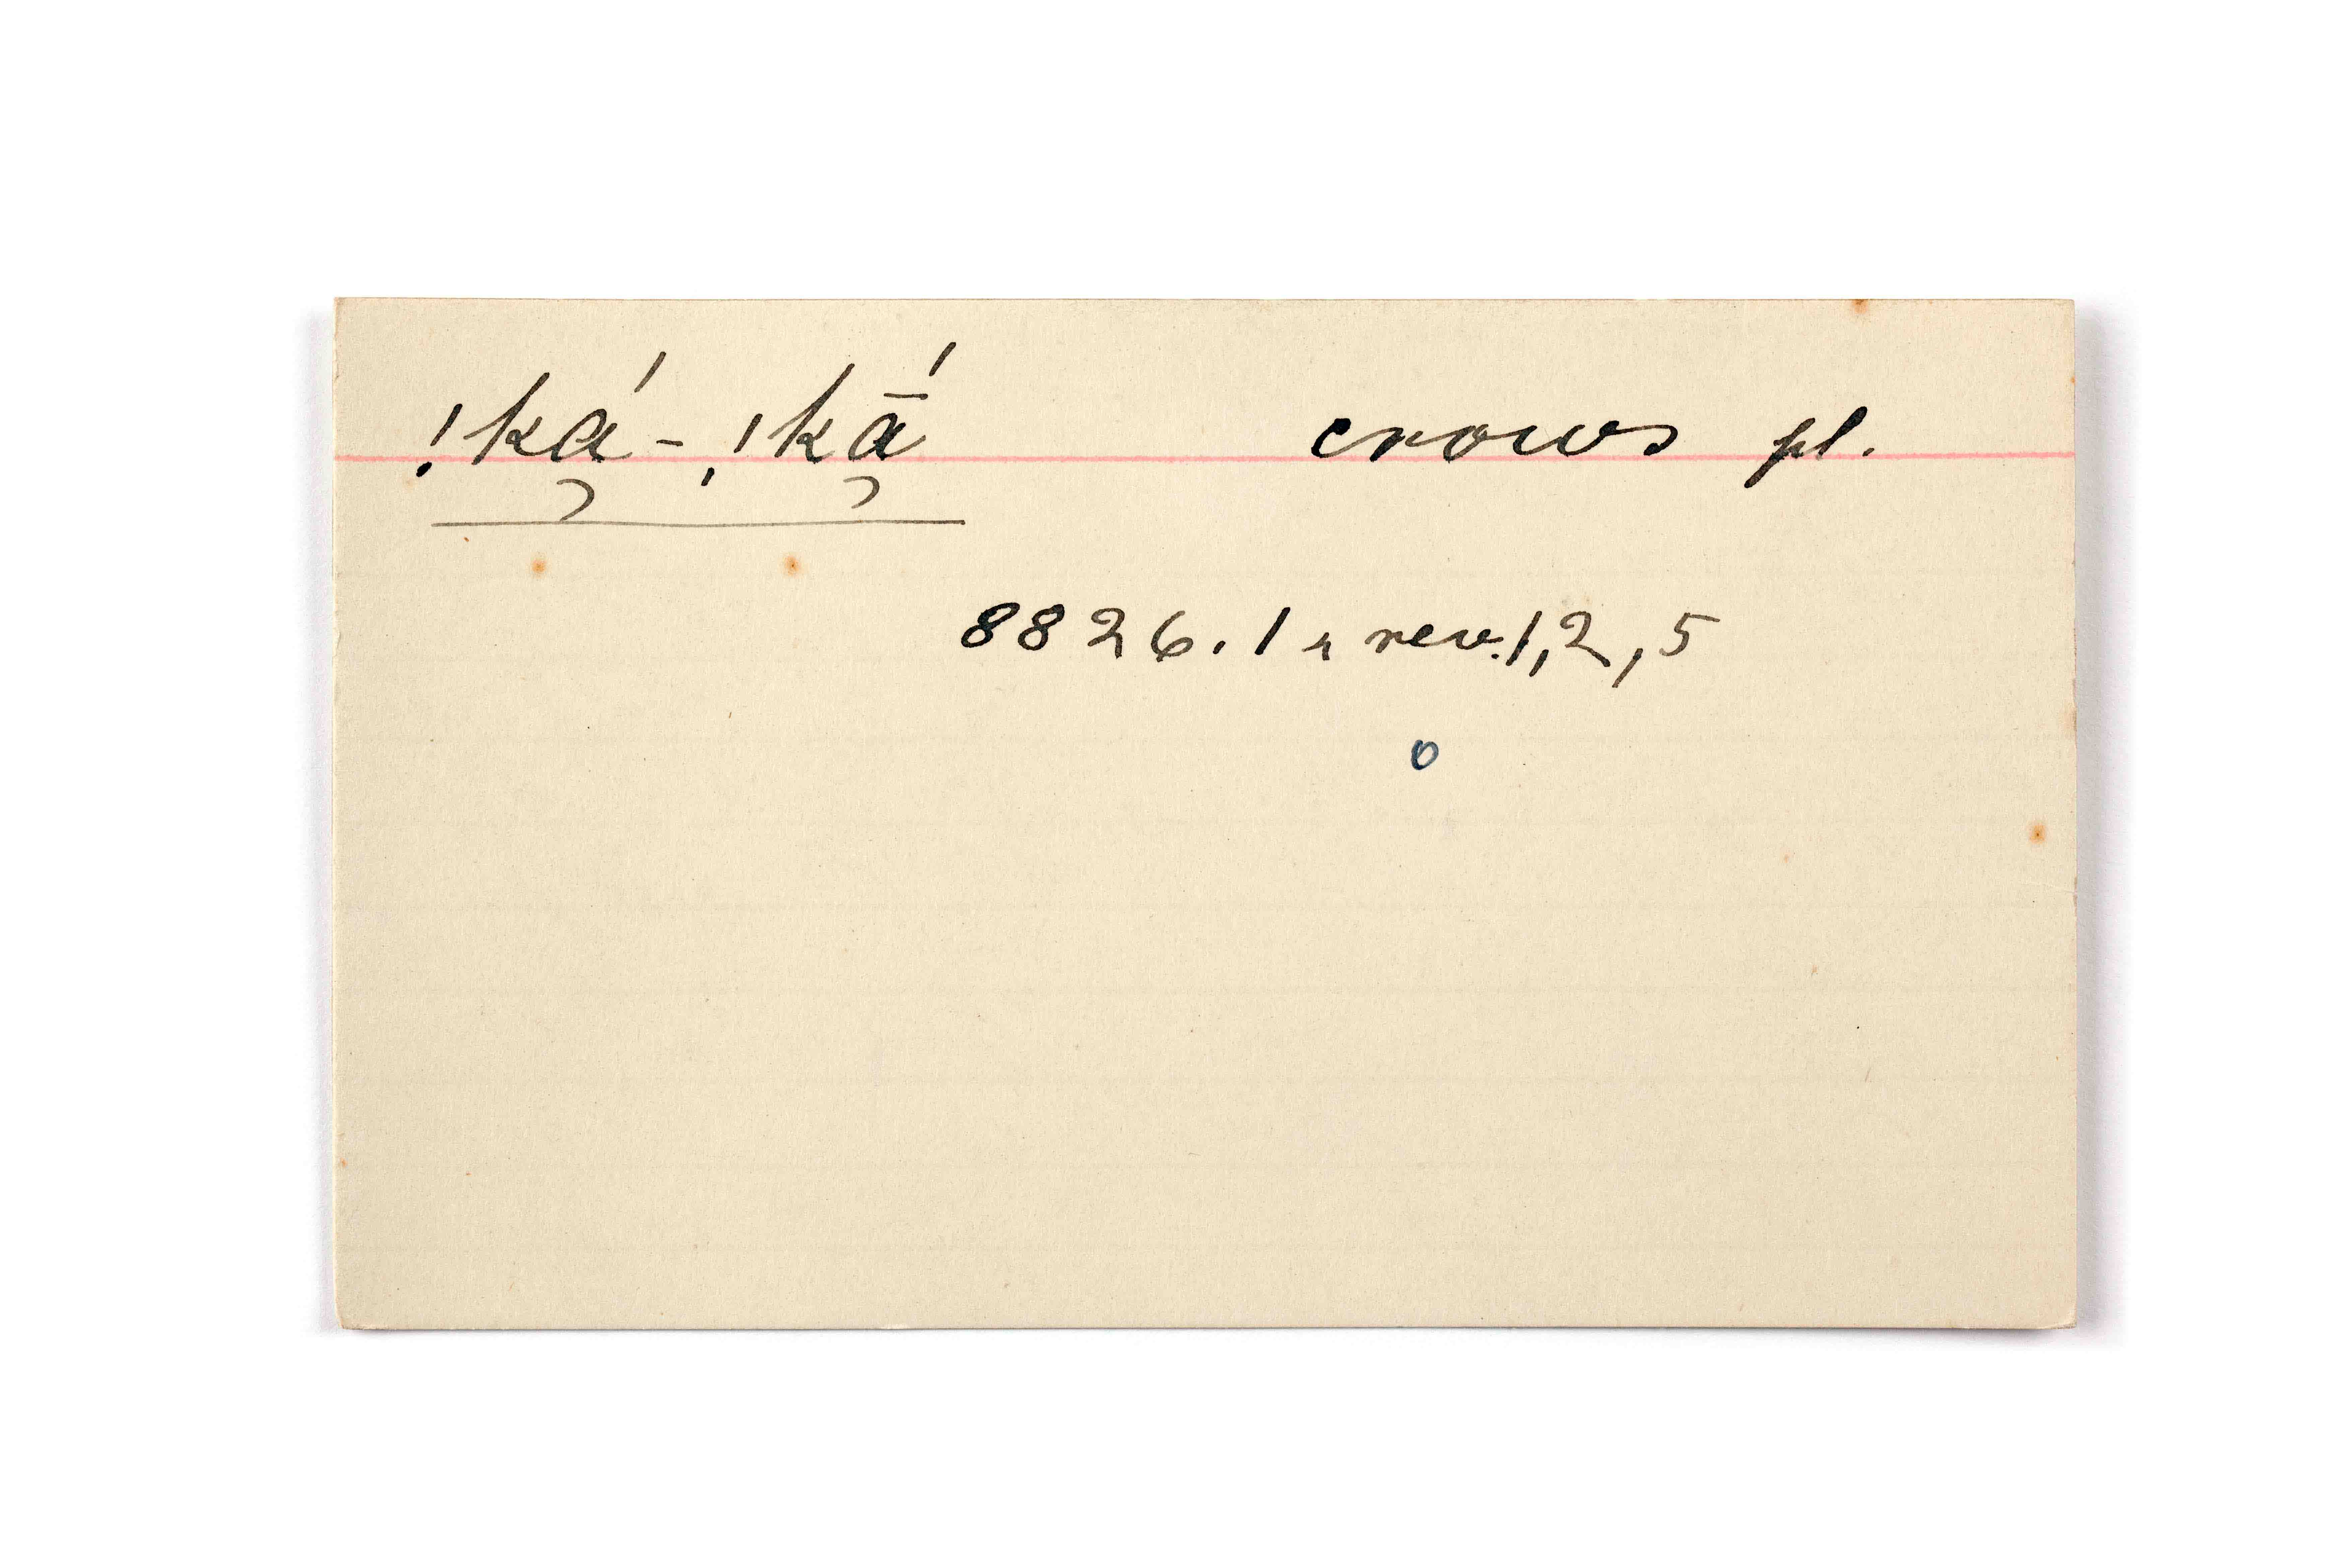 !ká-!kā́ crows pl.
8826.1 & rev.1,2,5
o